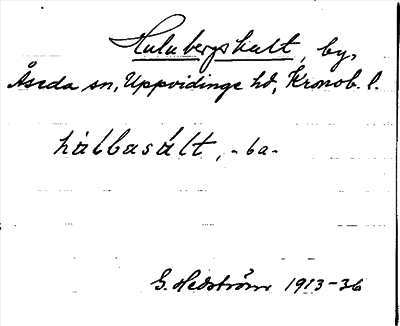 Hulubergshult, by,
Åseda sn, Uppvidinge hd, Kronob. l.
hàlbasált, -ba-
G. Hedström 1913-36